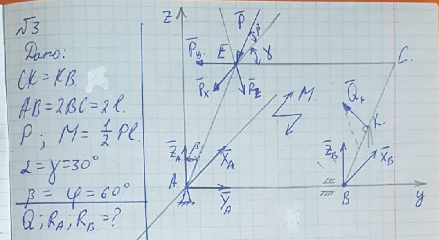 √3
Дано:
CK = KB.
AB = 2BC = 2l.
P; M = 1/2 Pl.
α = γ = 30°
β = φ = 60°
Q; R_A; R_B = ?
z
P̄
β
E
P̄_y
γ
C.
P̄_x
P̄_z
M.
Q̄
K.
Z̄_A
X̄_A
Z̄_B
X̄_B
A
Ȳ_A
B
y